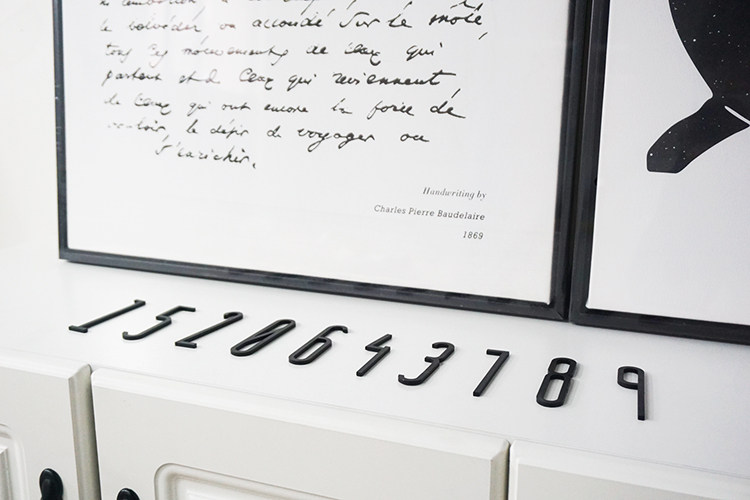 le belvédér ou accoudé sur le môle,
tous ces mouvements de ceux qui
partent et de ceux qui reviennent
de ceux qui ont encore la force de
vouloir, le désir de voyager ou
s'enrichir.
Handwriting by
Charles Pierre Baudelaire
1869
1520643789